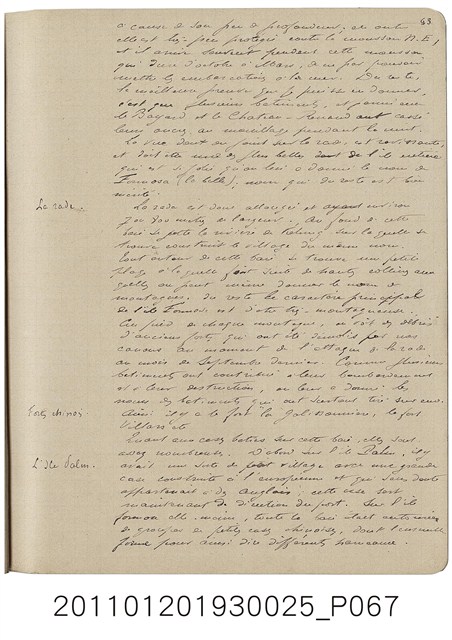 63
à cause de son peu de profondeur, et en outre
elle est très peu protégée contre la mousson N.E,
et il arrive souvent pendant cette mousson
qui dure d'octobre à Mars, de ne pas pouvoir
mettre les embarcations à la mer. Du reste,
la meilleure preuve que je puisse en donner,
c'est que plusieurs bâtiments, et parmi eux
le Bayard et le Chateau-Renaud ont cassé
leurs ancres au mouillage pendant la nuit.
La vue dont on jouit sur la rade, est ravissante,
et doit être une des plus belles dont de l'île entière
qui est si jolie qu'on lui a donné le nom de
Formosa (la belle), nom qui du reste est bien
mérité.
La rade.
La rade est donc allongée et ayant environ
mètres de largeur. Au fond de cette
baie se jette la rivière de Kelung, sur laquelle se
trouve construit le village du même nom.
Tout autour de cette baie se trouve un petit
plage à laquelle font suite de hautes collines aux
quelles on peut même donner le nom de
montagnes. Du reste le caractère principal
de l'île Formose est d'être très montagneuse.
Au pied de chaque montagne, on voit des débris
d'anciens forts qui ont été démolis par nos
canons au moment de l'attaque de la rade
au mois de Septembre dernier. Comme plusieurs
bâtiments ont contribué à leur bombardement
et à leur destruction, on leur a donné les
noms des bâtiments qui ont surtout tiré sur eux.
Forts chinois
Ainsi il y a le fort la Galissonnière, le fort
Villars etc
Quant aux cases baties sur cette baie, elles sont
assez nombreuses. D'abord sur l'île Palm, il y
L'Isle Palm.
avait une sorte de petit village avec une grande
case construite à l'européenne et qui sans doute
appartenait à des Anglais; cette case sert
maintenant de direction du port. Sur l'île
Formose elle-même, toute la baie était entourée
de groupes de petites cases chinoises, dont l'ensemble
forme pour ainsi dire différents hameaux.
201101201930025_P067